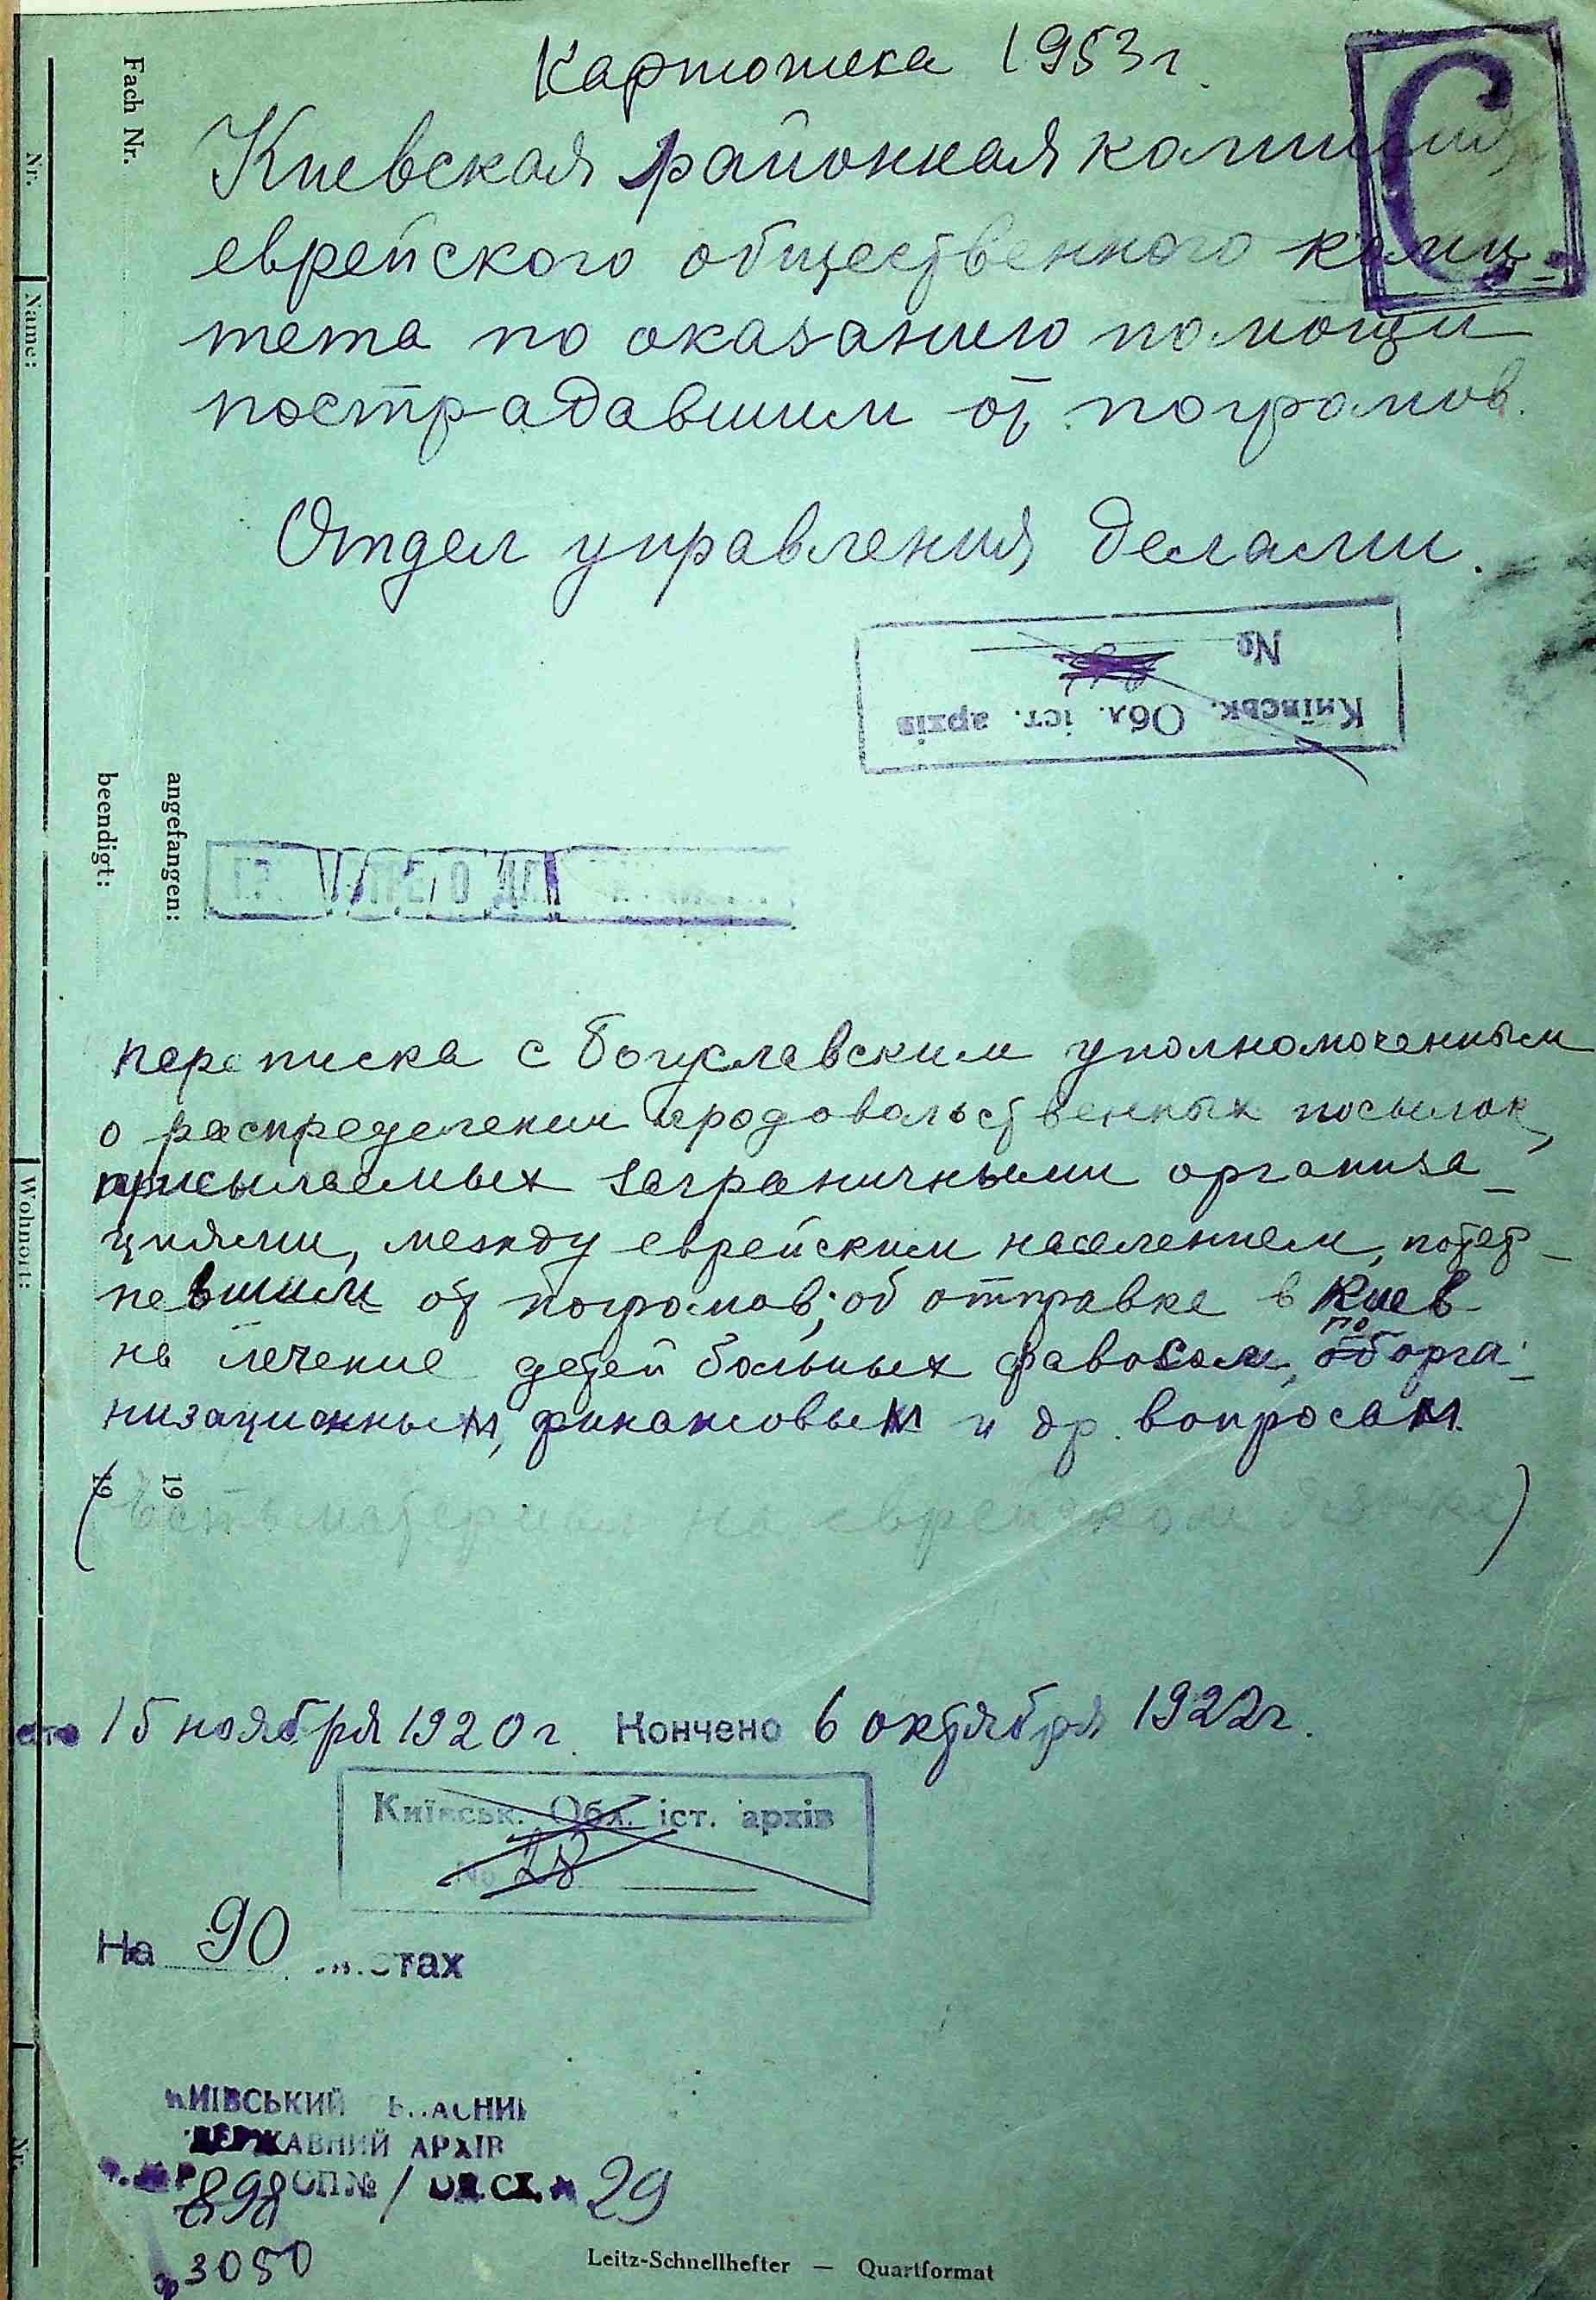 Картотека 1953 г.
С
Киевская районная комиссия
еврейского общественного коми-
тета по оказанию помощи
пострадавшим от погромов.
Отдел управления делами.
Київськ. Обл. іст. архів
№
Fach Nr.
Nr.
Name:
angefangen:
beendigt:
переписка с богуславским уполномоченным
о распределении продовольственных посылок,
присылаемых заграничными организа-
циями, между еврейским населением, потер-
певшим от погромов; об отправке в Киев
на лечение детей больных фавосом, по орга-
низационным, финансовым и др. вопросам.
Wohnort:
19
19
(Есть материал на еврейском языке)
15 ноября 1920 г. Кончено 6 октября 1922 г.
Київськ. Обл. іст. архів
№ 28
На 90 листах
КИЇВСЬКИЙ ОБЛАСНИЙ
ДЕРЖАВНИЙ АРХІВ
898 ОП № 1 ОД. СХ. № 29
Nr.
3050
Leitz-Schnellhefter — Quartformat